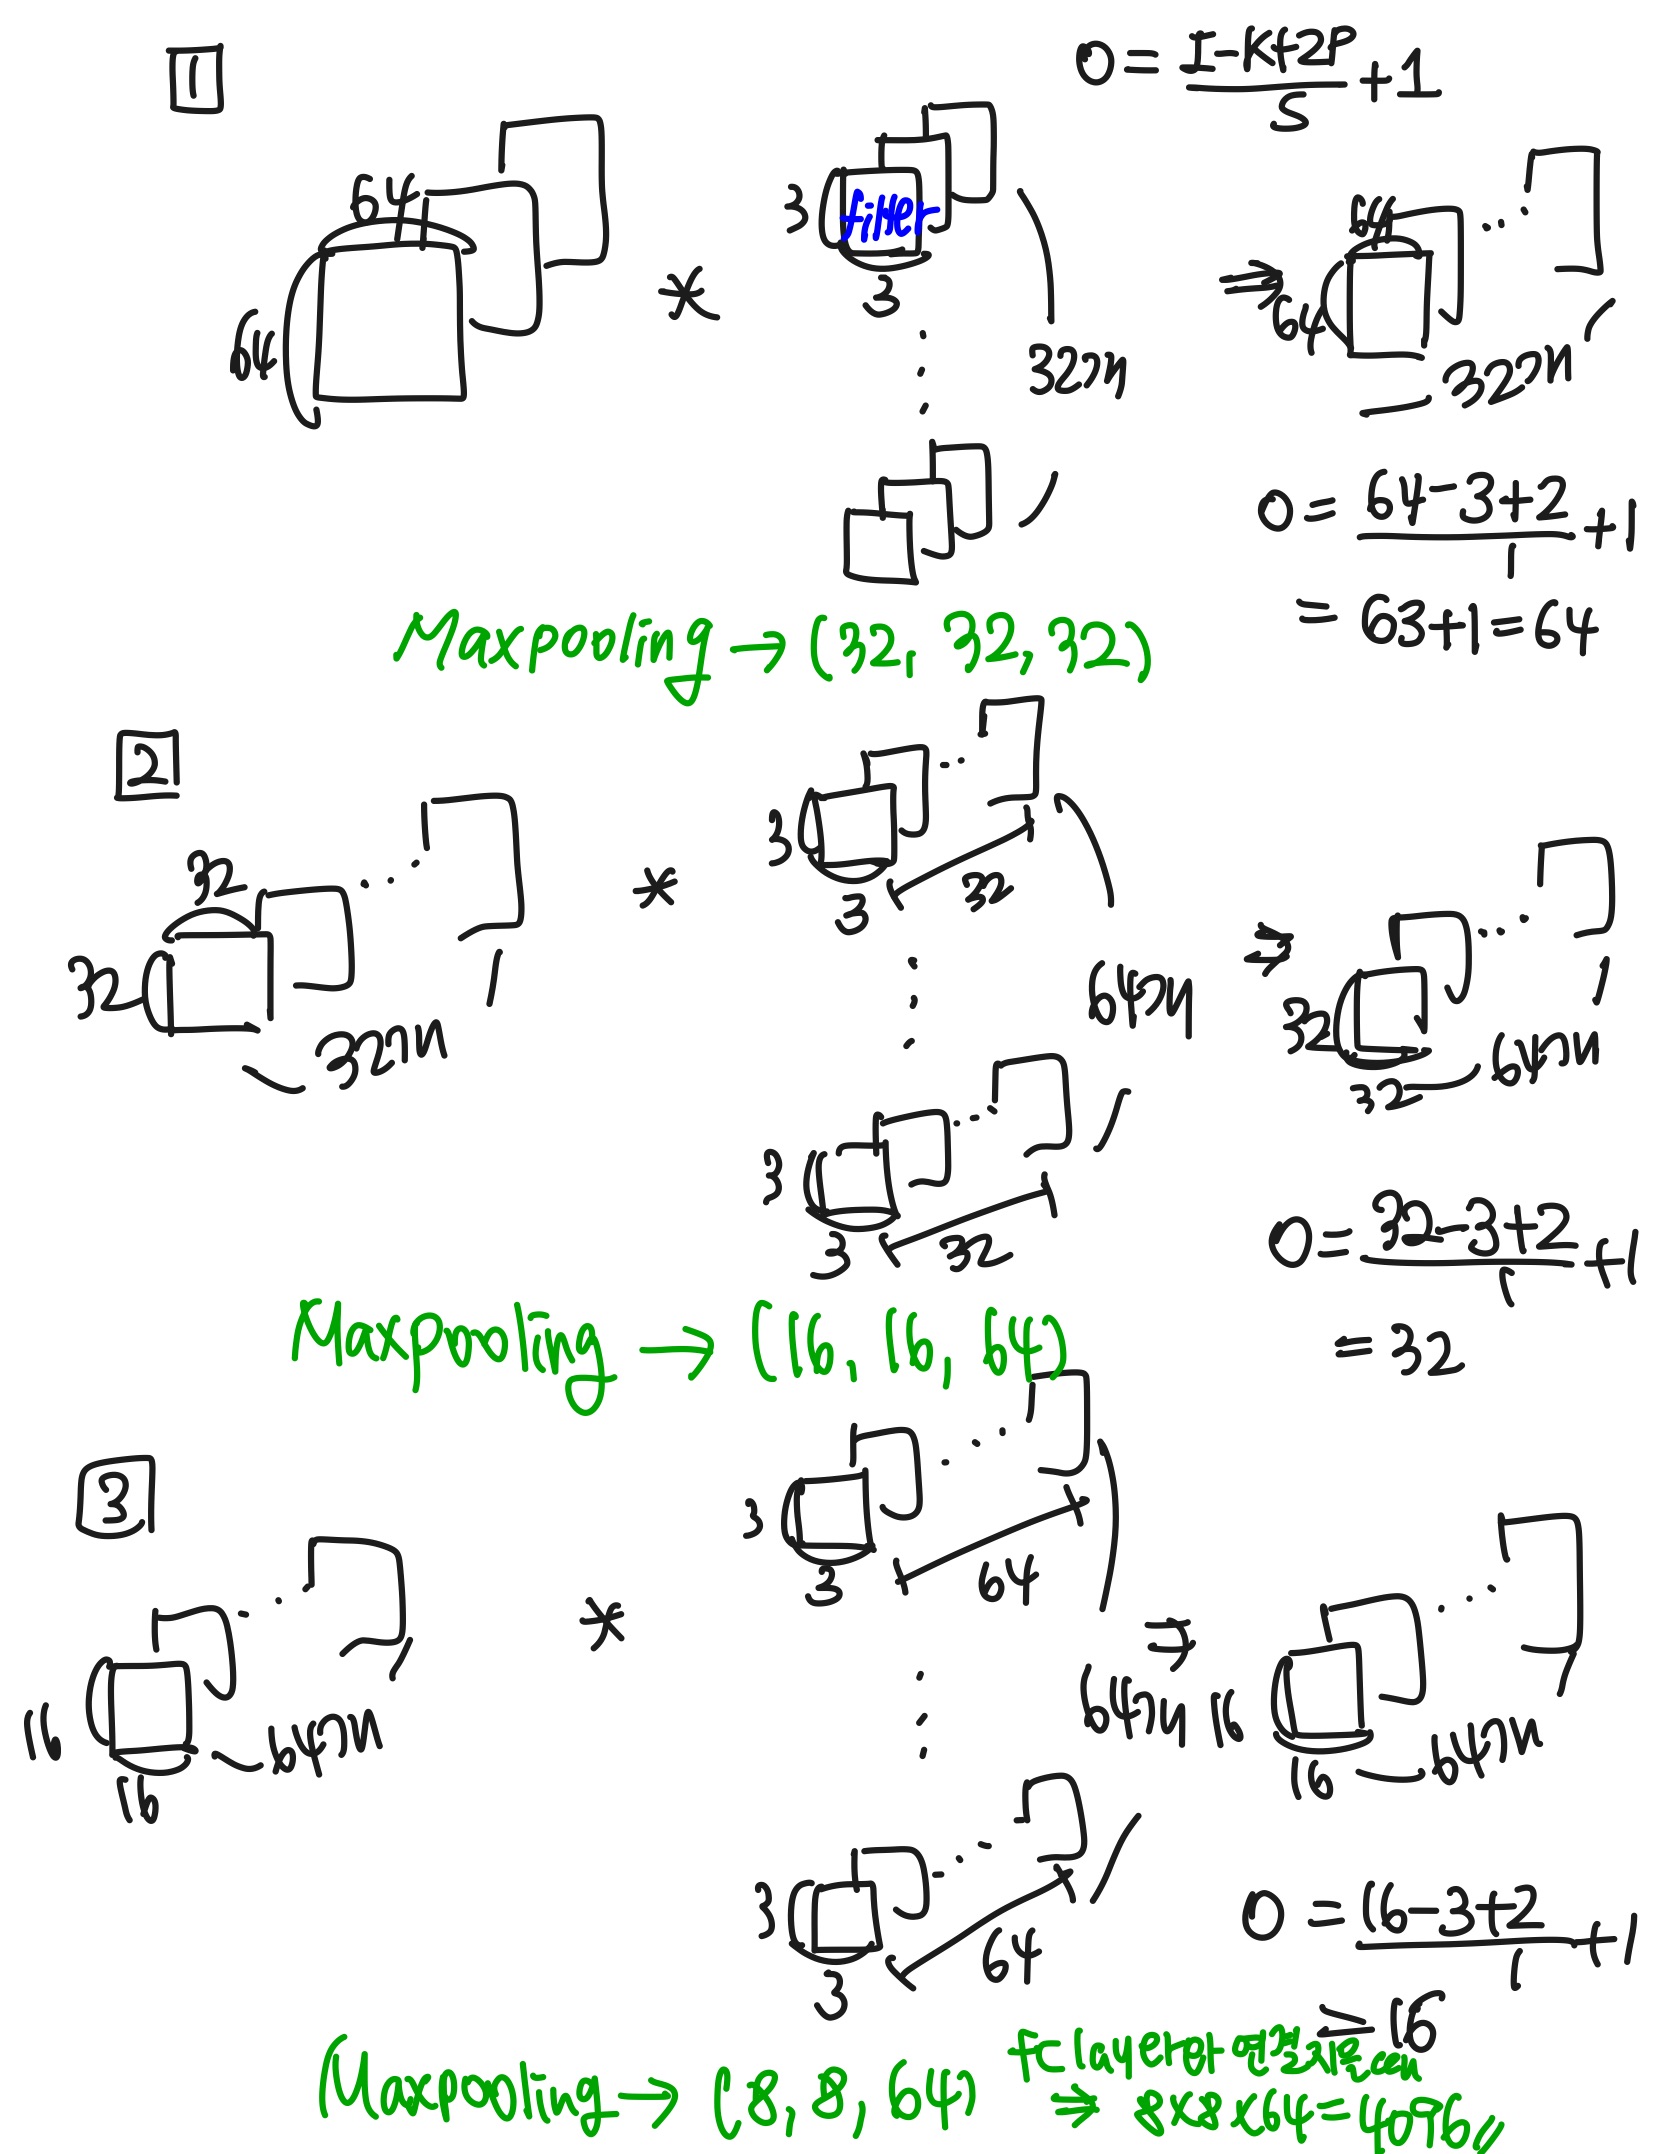 1
O = I-K+2P / S + 1
64
64
*
3
filter
3
32개
⇒
64
64
32개
O = 64-3+2 / 1 + 1
= 63+1 = 64
Maxpooling → (32, 32, 32)
2
32
32
32개
*
3
3
32
64개
3
3
32
⇒
32
32
64개
O = 32-3+2 / 1 + 1
= 32
Maxpooling → (16, 16, 64)
3
16
16
64개
*
3
3
64
64개
3
3
64
⇒
16
16
64개
O = 16-3+2 / 1 + 1
= 16
Maxpooling → (8, 8, 64)
fc layer와 연결지을 땐
⇒ 8×8×64=4096